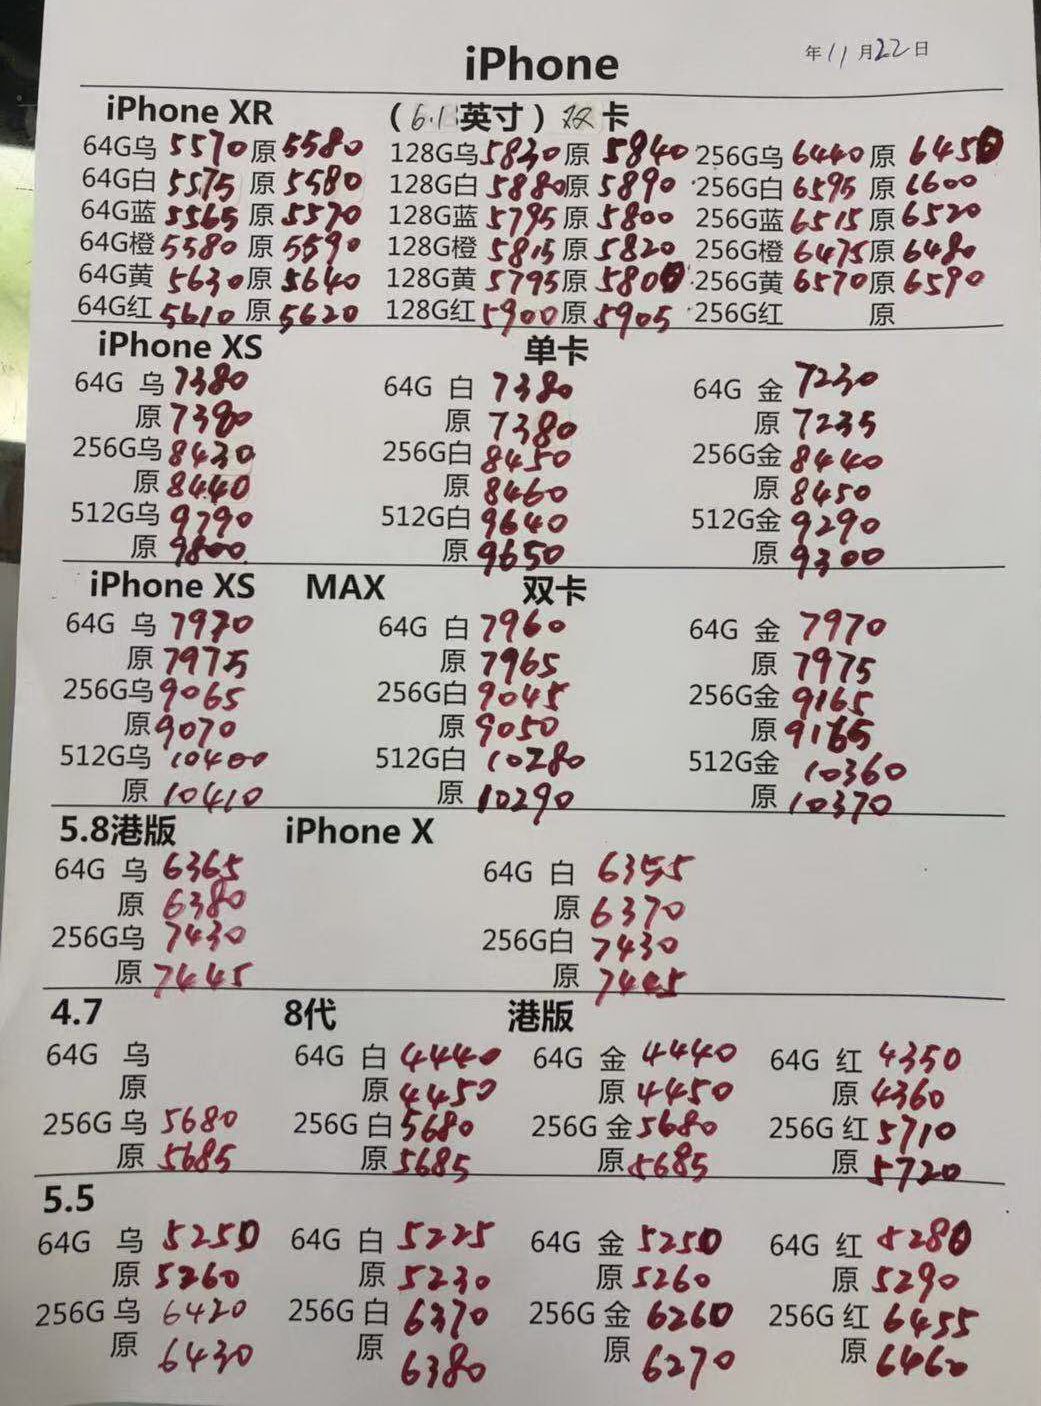 iPhone 年11月22日
iPhone XR (6.1英寸) 双卡
64G乌 5570 原 5580 128G乌 5830 原 5840 256G乌 6440 原 6450
64G白 5575 原 5580 128G白 5880 原 5890 256G白 6595 原 6600
64G蓝 5565 原 5570 128G蓝 5795 原 5800 256G蓝 6515 原 6520
64G橙 5580 原 5590 128G橙 5815 原 5820 256G橙 6475 原 6480
64G黄 5630 原 5640 128G黄 5795 原 5800 256G黄 6570 原 6590
64G红 5610 原 5620 128G红 5900 原 5905 256G红 原
iPhone XS 单卡
64G 乌 7380 64G 白 7380 64G 金 7230
原 7390 原 7380 原 7235
256G乌 8430 256G白 8450 256G金 8440
原 8440 原 8460 原 8450
512G乌 9790 512G白 9640 512G金 9290
原 9800 原 9650 原 9300
iPhone XS MAX 双卡
64G 乌 7970 64G 白 7960 64G 金 7970
原 7975 原 7965 原 7975
256G乌 9065 256G白 9045 256G金 9165
原 9070 原 9050 原 9165
512G乌 10400 512G白 10280 512G金 10360
原 10410 原 10290 原 10370
5.8港版 iPhone X
64G 乌 6365 64G 白 6355
原 6380 原 6370
256G乌 7430 256G白 7430
原 7445 原 7445
4.7 8代 港版
64G 乌 64G 白 4440 64G 金 4440 64G 红 4350
原 原 4450 原 4450 原 4360
256G 乌 5680 256G 白 5680 256G 金 5680 256G 红 5710
原 5685 原 5685 原 5685 原 5720
5.5
64G 乌 5250 64G 白 5225 64G 金 5250 64G 红 5280
原 5260 原 5230 原 5260 原 5290
256G 乌 6420 256G 白 6370 256G 金 6260 256G 红 6455
原 6430 原 6380 原 6270 原 6460